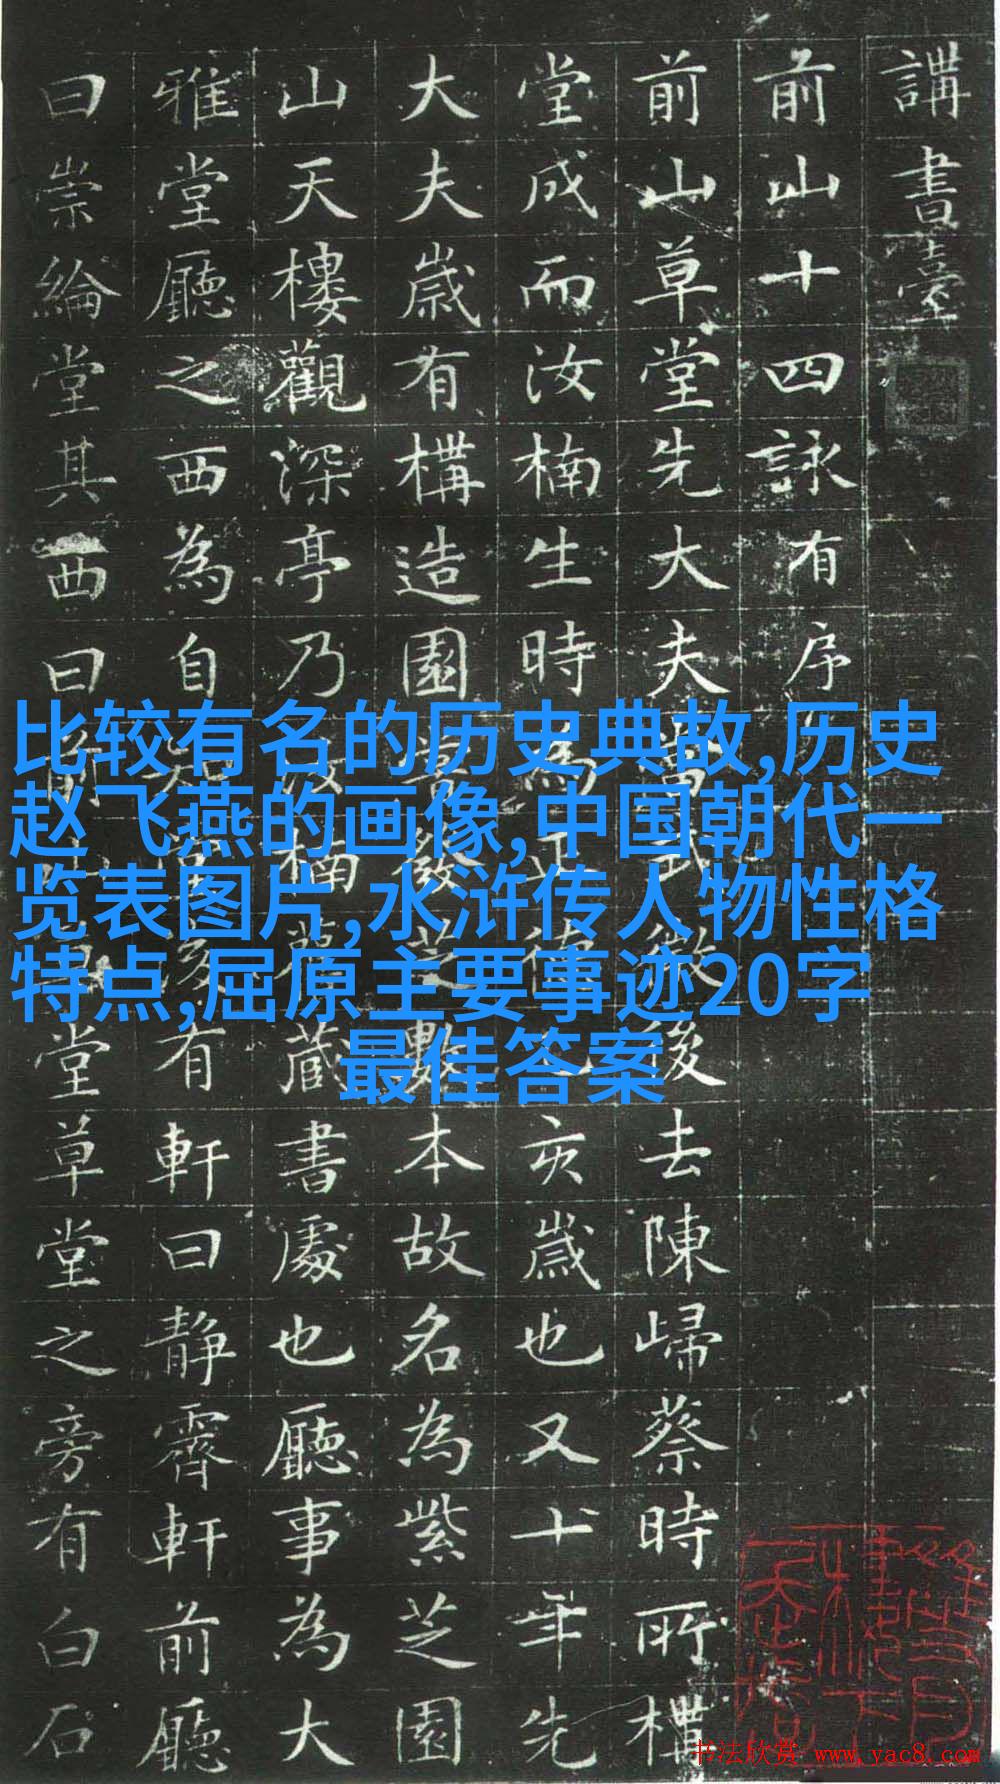 講書臺
前山十四詠有序
前山草堂先大夫後去陳歸蔡時所構
堂成而汝楠生時為亥歲也又十年先
大夫歲有構造園發芝數本故名為紫芝園
山天樓觀深亭乃楠舊藏書處也廳事為大
雅堂廳之西為自有軒曰静霽軒前廳
曰崇綸堂其西曰前堂草堂之旁有白石
比较有名的历史典故,历史
赵飞燕的画像,中国朝代一
览表图片,水浒传人物性格
特点,屈原主要事迹20字
最佳答案
书法欣赏 www.yac8.com